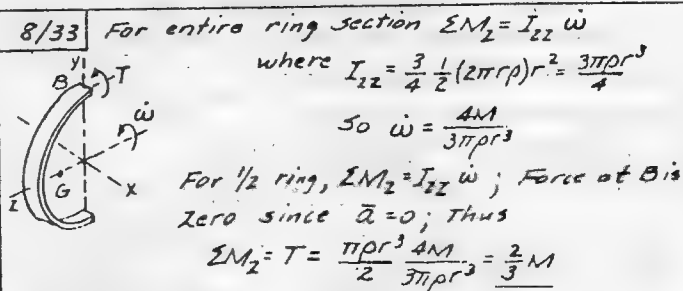 8/33 For entire ring section ΣM_z = I_zz ω̇
where I_zz = 3/4 1/2 (2πrρ)r² = 3πρr³/4
So ω̇ = 4M/3πρr³
y
B
T
ω̇
G
x
z
For 1/2 ring, ΣM_z = I_zz ω̇ ; Force at B is
zero since ā = 0; Thus
ΣM_z = T = πρr³/2 4M/3πρr³ = 2/3 M